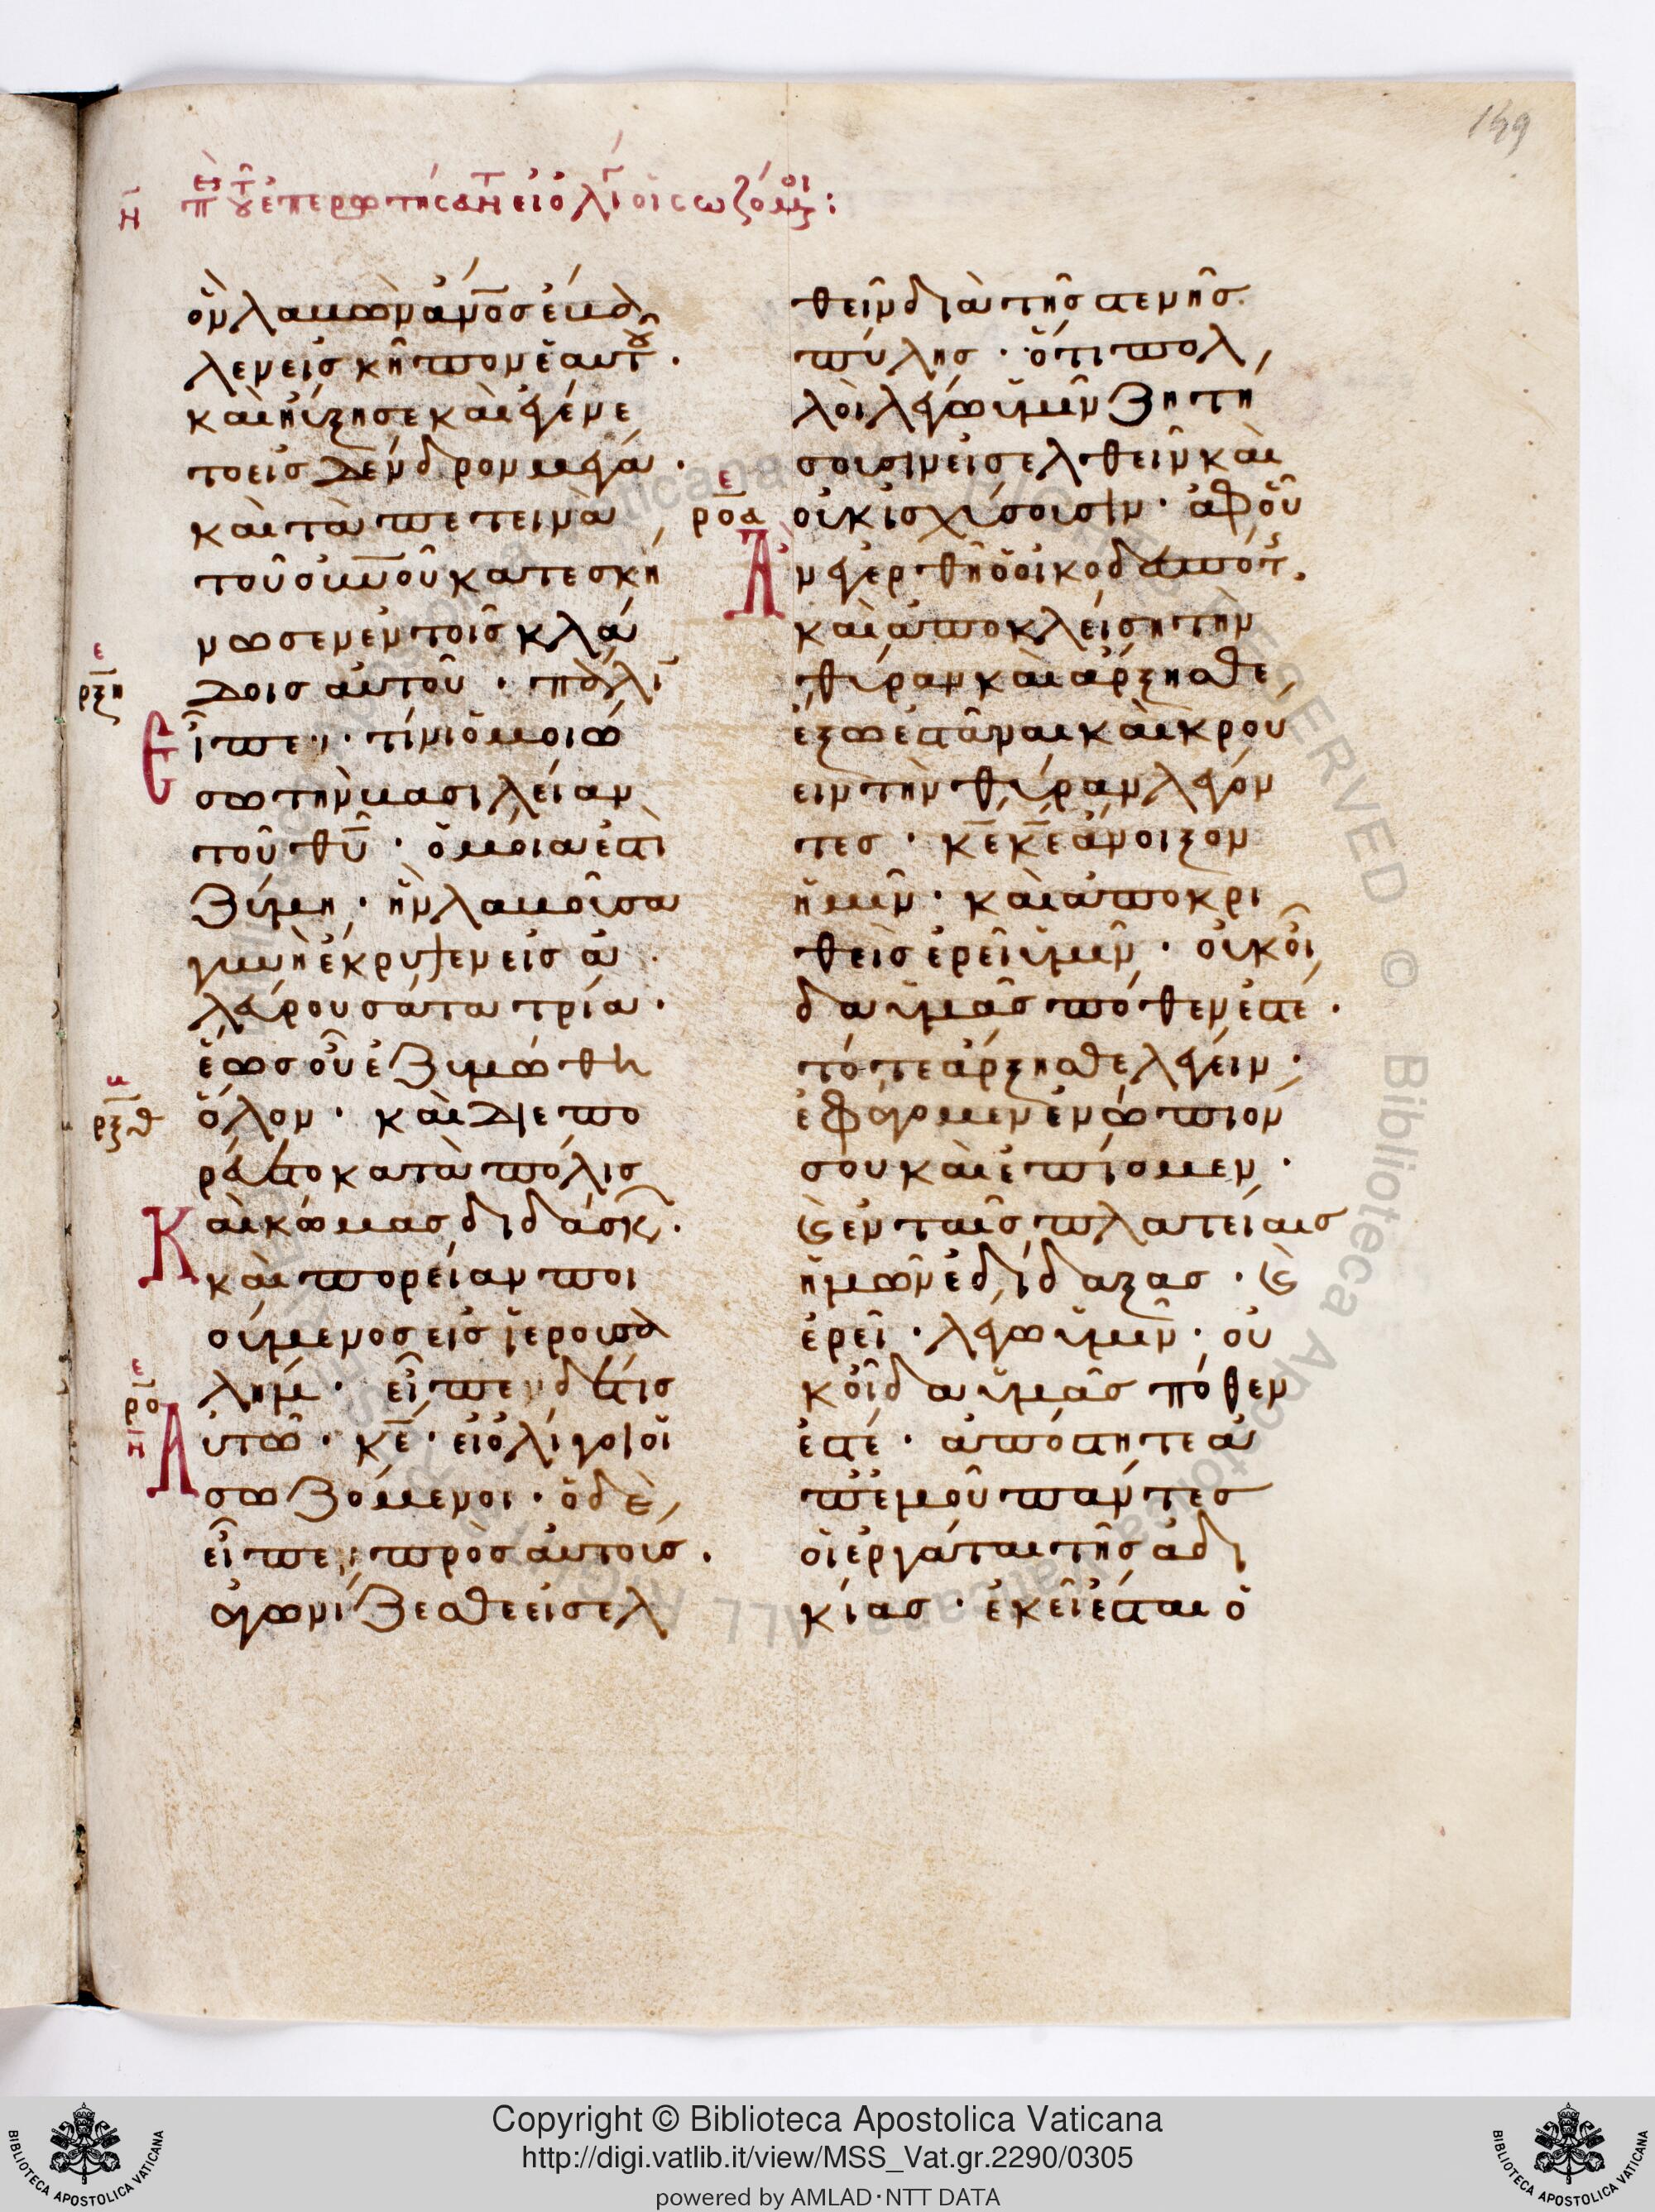 149
ν̅η̅ πε τοῦ ἐπερωτήσαντ εἰ ὀλίγοι οἱ σωζόμενοι:
ὃν λαβὼν ἄν̅ο̅σ ἔβα
λεν εἰς κῆπον ἑαυτοῦ·
καὶ ηὔξησε καὶ ἐγένε
το εἰς δένδρον μέγα·
καὶ τὰ πετεινὰ
τοῦ οὐν̅οῦ κατεσκή
νωσεν ἐν τοῖς κλά
ε
ρξη
δοις αὐτοῦ · πάλι
Εἶπεν · τίνι ὁμοιώ
σω τὴν βασιλείαν
τοῦ θ̅υ̅ · ὁμοία ἐστὶ
ζύμη · ἣν λαβοῦσα
γυνὴ ἐκρυψεν εἰς ἀ
λεύρου σάτα τρία·
ἕως οὗ ἐζυμώθη
β
ρξθ
ὅλον · καὶ διεπο
ρεύετο κατὰ πόλις
Καὶ κώμας διδάσκων·
καὶ πορείαν ποι
ούμενος εἰς ἱερουσα
λήμ · εἶπεν δέ τις
ε
ρο
ν̅η̅
Αὐτῶ · κ̅ε̅ · εἰ ὀλίγοι οἱ
σωζόμενοι · ὁ δὲ
εἶπεν πρὸς αὐτούς·
ἀγωνίζεσθε εἰσελ
θεῖν διὰ τῆς στενῆς
πύλης · ὅτι πολ
λοὶ λέγω ὑμῖν ζητή
σουσιν εἰσελθεῖν καὶ
ε
ροα
οὐκ ἰσχύσουσιν · ἀφ οὗ
Ἀν ἐγερθῆ ὁ οἰκοδεσπότ
καὶ ἀποκλείση τὴν
θύραν καὶ ἄρξησθε
ἔξω ἑστάναι καὶ κρού
ειν τὴν θύραν λέγον
τες · κ̅ε̅ κ̅ε̅ ἄνοιξον
ἡμῖν · καὶ ἀποκρι
θεὶς ἐρεῖ ὑμῖν · οὐκ οἶ
δα ὑμᾶς πόθεν ἐστέ·
τότε ἄρξησθε λέγειν·
ἐφάγομεν ἐνώπιόν
σου καὶ ἐπίομεν·
ϗ̀ ἐν ταῖς πλατείαις
ἡμῶν ἐδίδαξας · ϗ̀
ἐρεῖ · λέγω ὑμῖν · οὐ
κ οἶδα ὑμᾶς πόθεν
ἐστέ · ἀπόστητε ἀ
π ἐμοῦ πάντες
οἱ ἐργάται τῆς ἀδι
κίας · ἐκεῖ ἔσται ὁ
Copyright © Biblioteca Apostolica Vaticana
http://digi.vatlib.it/view/MSS_Vat.gr.2290/0305
powered by AMLAD·NTT DATA
BIBLIOTECA APOSTOLICA VATICANA
BIBLIOTECA APOSTOLICA VATICANA